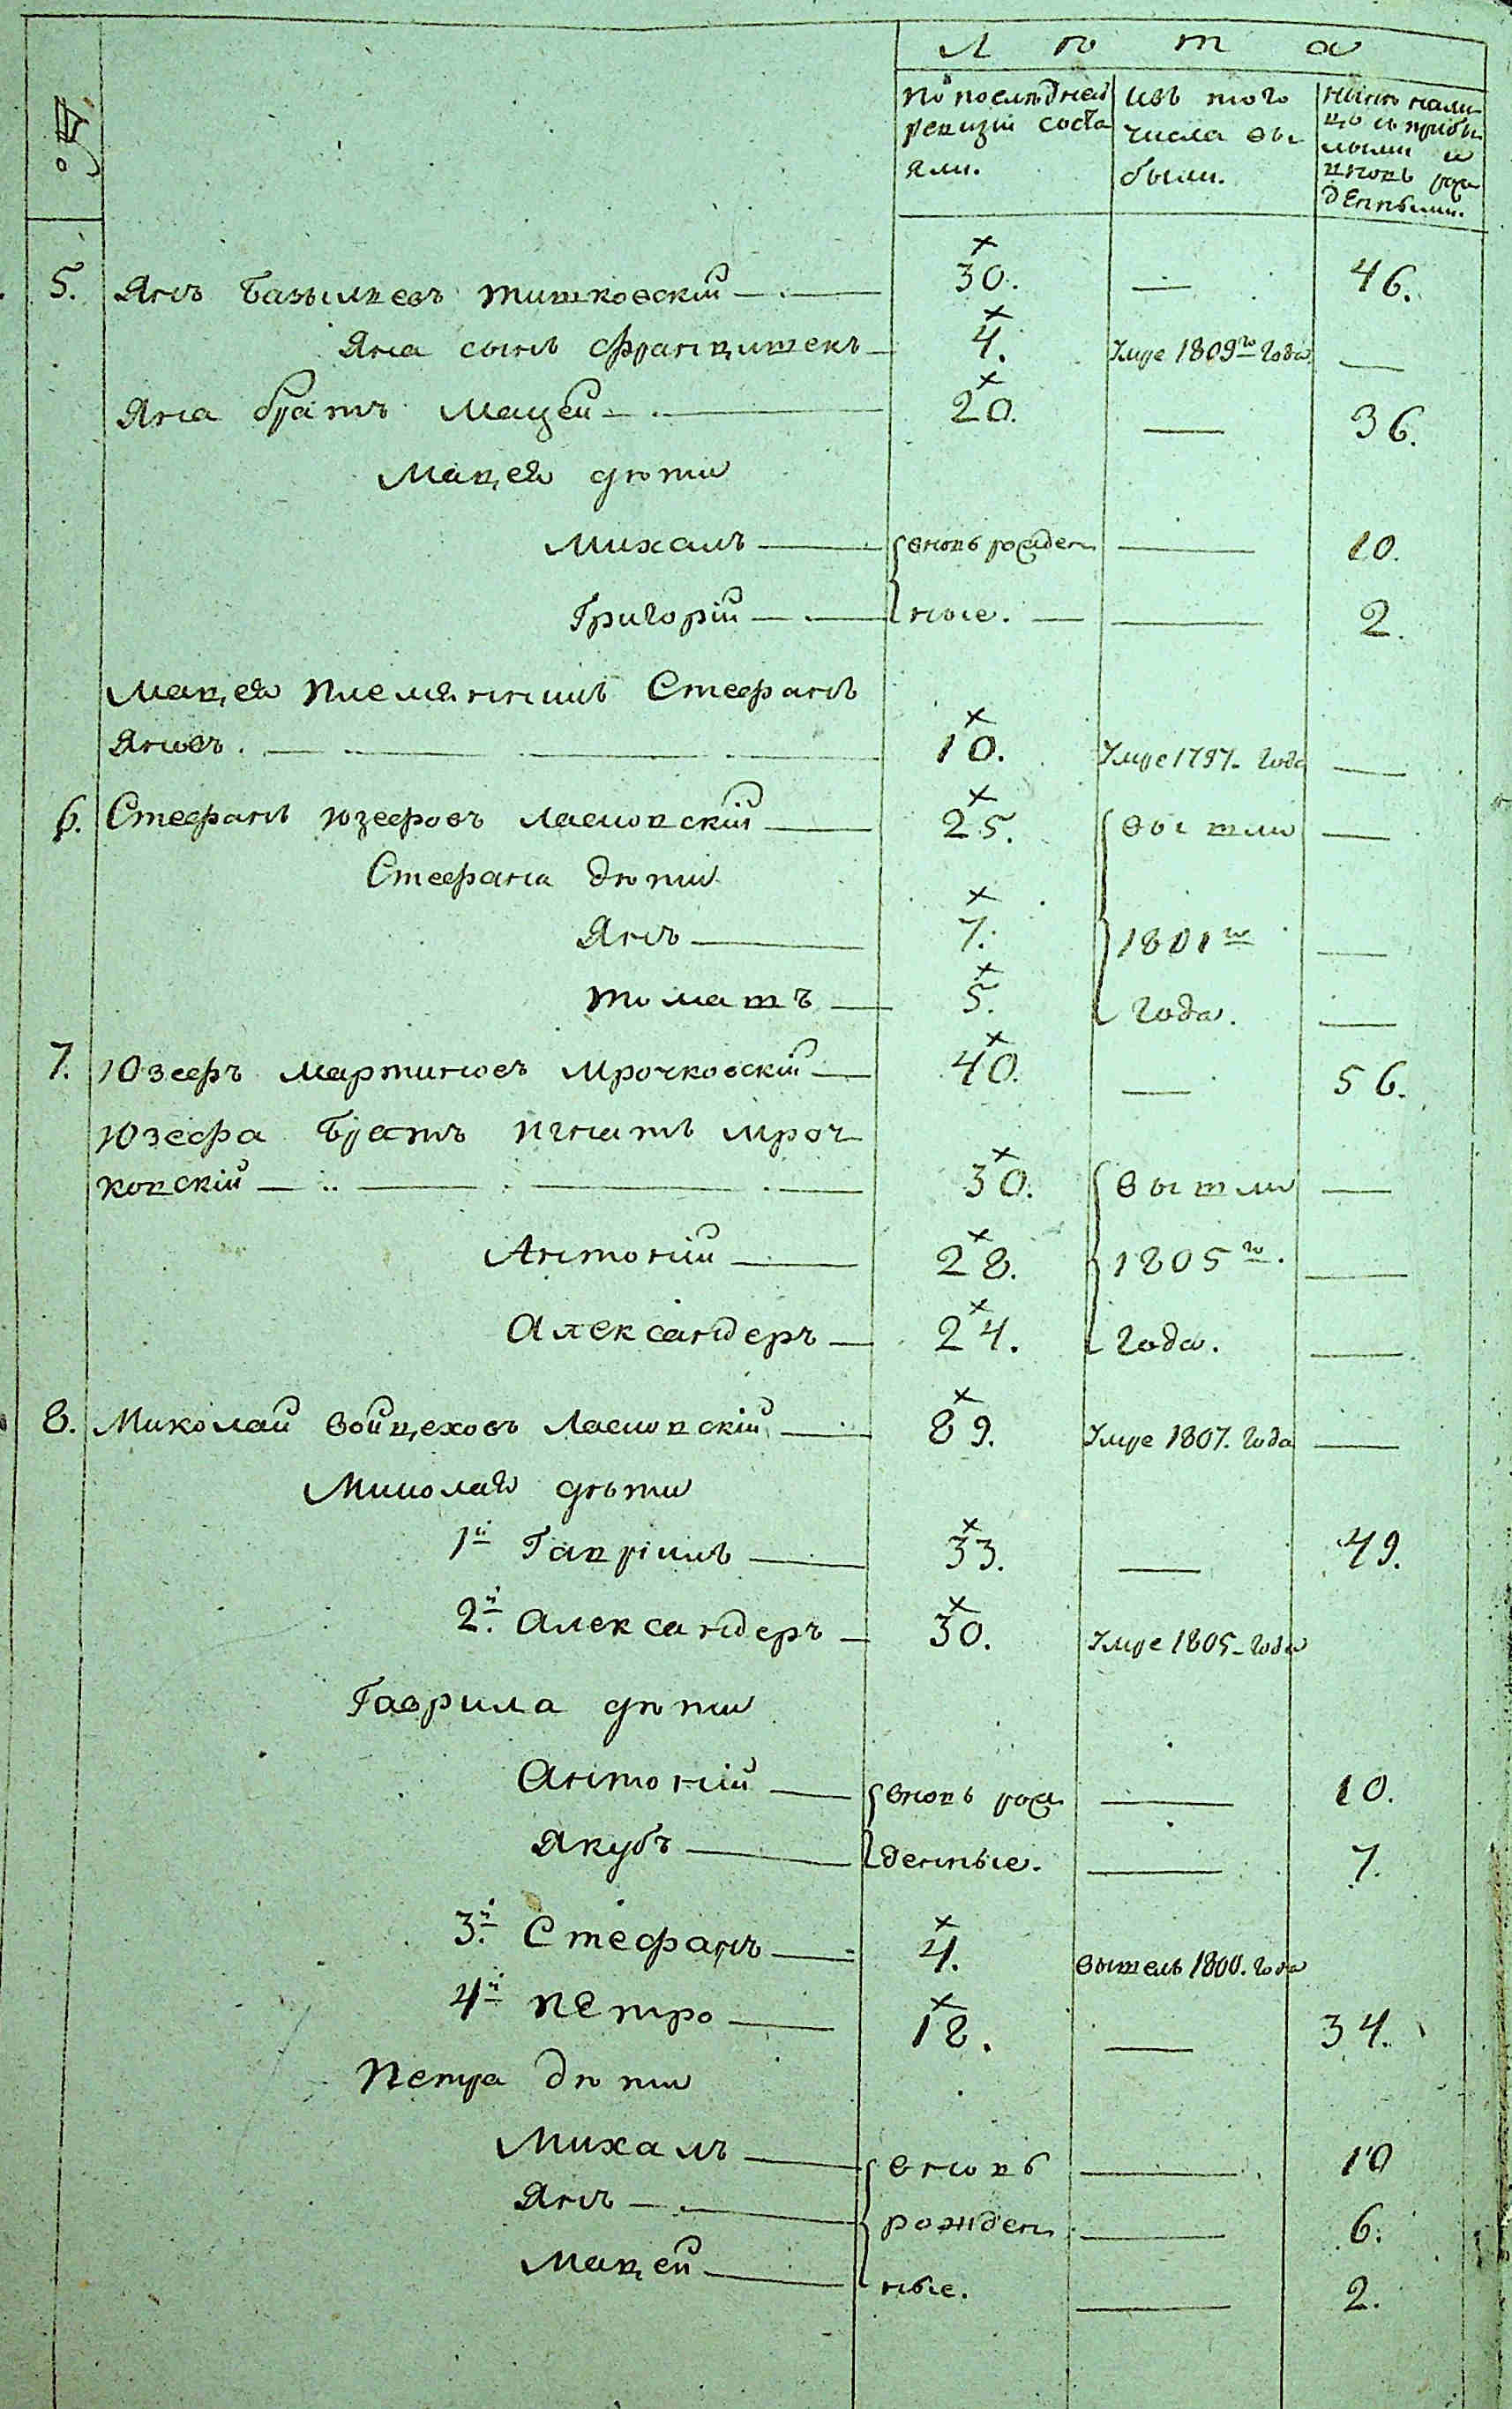 №
Лѣта
По последнѣй ревизіи состояли.
изъ того числа выбыли.
нынѣ налицо съ прибылыми и вновь рожденными.
5. Янъ Базылевъ Тишковскій — 30. — 46.
Яна сынъ Францишекъ — 4. Умре 1809го Года —
Яна братъ Мацей — 20. — 36.
Мацея дѣти
Михалъ — вновь рожден — 10.
Григорій — ные. — 2.
Мацея племянникъ Стефанъ
Яновъ. — 10. Умре 1797. Года —
6. Стефанъ Юзефовъ — 25. вышли —
Стефана дѣти
Янъ — 7. 1801го —
Томашъ — 5. Года. —
7. Юзефъ Мартиновъ Мрочковскій — 40. — 56.
Юзефа Братъ Игнатъ Мроч
ковскій — 30. вышли —
Антоній — 28. 1805го. —
Александеръ — 24. Года. —
8. Миколай Войцеховъ — 89. Умре 1807. Года —
Миколая дѣти
1й Гавріилъ — 33. — 49.
2й. Александеръ — 30. Умре 1805. Года
Гаврила дѣти
Антоній — вновь рож — 10.
Якубъ — денные. — 7.
3й. Стефанъ — 4. вышелъ 1800. Года
4й Петро — 18. — 34.
Петра дѣти
Михалъ — вновь — 10
Янъ — рожден — 6.
Мацей — ные. — 2.